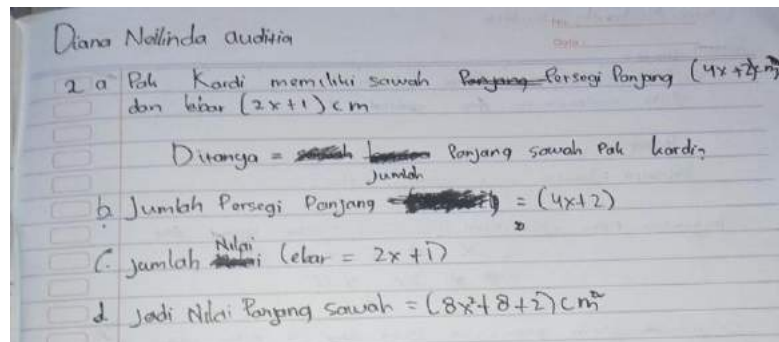 Diana Nellinda auditia
2 a Pak Kardi memiliki sawah Persegi Panjang (4x+2)cm
dan lebar (2x+1) cm
Ditanya = Panjang sawah Pak kardi?
Jumlah
b. Jumlah Persegi Panjang = (4x+2)
c. Jumlah Nilai Lebar = 2x+1)
d Jadi Nilai Panjang sawah = (8x²+8+2) cm²